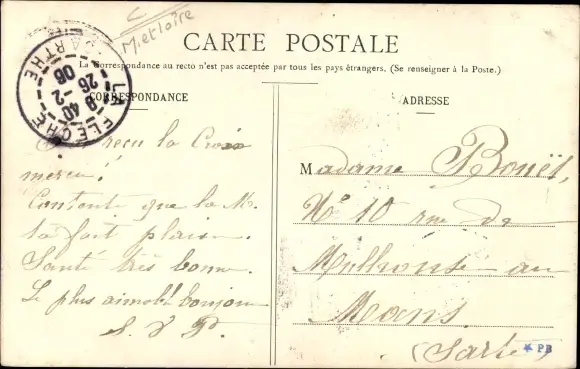 M. et loire
CARTE POSTALE
La Correspondance au recto n'est pas acceptée par tous les pays étrangers. (Se renseigner à la Poste.)
LA FLECHE
SARTHE
8 40
26 -2
06
CORRESPONDANCE
reçu la Croix
merci!
Contente que la M.
t'a fait plaisir.
Santé très bonne
Le plus aimable bonjour
S. V. P.
ADRESSE
Madame Bouët,
N° 10 rue de
Mulhouse au
Mans
(Sarthe)
PB